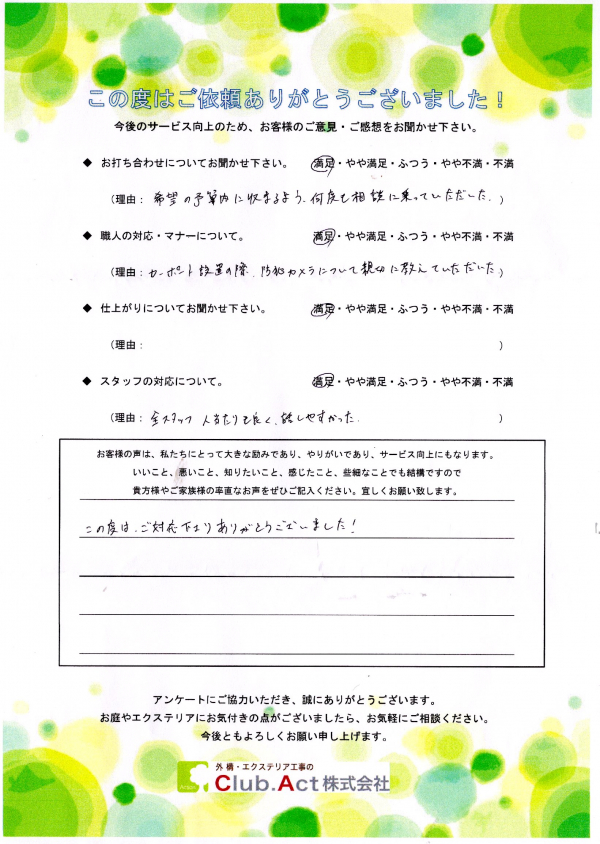 この度はご依頼ありがとうございました！
今後のサービス向上のため、お客様のご意見・ご感想をお聞かせ下さい。
◆ お打ち合わせについてお聞かせ下さい。 満足・やや満足・ふつう・やや不満・不満
（理由： 希望の予算内に収まるよう、何度も相談に乗っていただいた。）
◆ 職人の対応・マナーについて。 満足・やや満足・ふつう・やや不満・不満
（理由： カーポート設置の際、防犯カメラについて親切に教えていただいた）
◆ 仕上がりについてお聞かせ下さい。 満足・やや満足・ふつう・やや不満・不満
（理由： ）
◆ スタッフの対応について。 満足・やや満足・ふつう・やや不満・不満
（理由： 全スタッフ 人当たりも良く、話しやすかった。 ）
お客様の声は、私たちにとって大きな励みであり、やりがいであり、サービス向上にもなります。
いいこと、悪いこと、知りたいこと、感じたこと、些細なことでも結構ですので
貴方様やご家族様の率直なお声をぜひご記入ください。宜しくお願い致します。
この度は、ご対応下さりありがとうございました！
アンケートにご協力いただき、誠にありがとうございます。
お庭やエクステリアにお気付きの点がございましたら、お気軽にご相談ください。
今後ともよろしくお願い申し上げます。
外構・エクステリア工事の
Club.Act株式会社